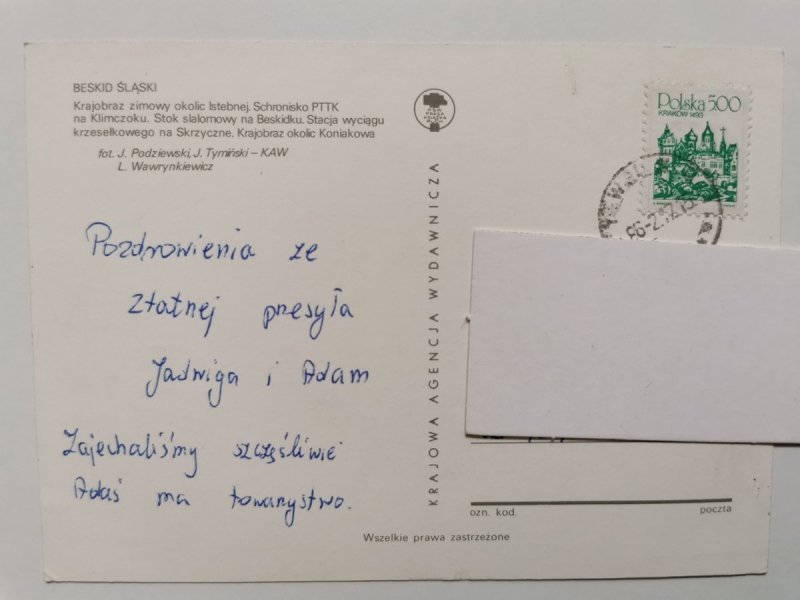 BESKID ŚLĄSKI
Krajobraz zimowy okolic Istebnej. Schronisko PTTK
na Klimczoku. Stok slalomowy na Beskidku. Stacja wyciągu
krzesełkowego na Skrzyczne. Krajobraz okolic Koniakowa
fot. J. Podziewski, J. Tymiński – KAW
L. Wawrynkiewicz
Pozdrowienia ze
Złatnej presyła
Jadwiga i Adam
Zajechaliśmy szczęśliwie
Adaś ma towarystwo.
KRAJOWA AGENCJA WYDAWNICZA
Polska 5.00
KRAKÓW 1493
ozn. kod.
poczta
Wszelkie prawa zastrzeżone